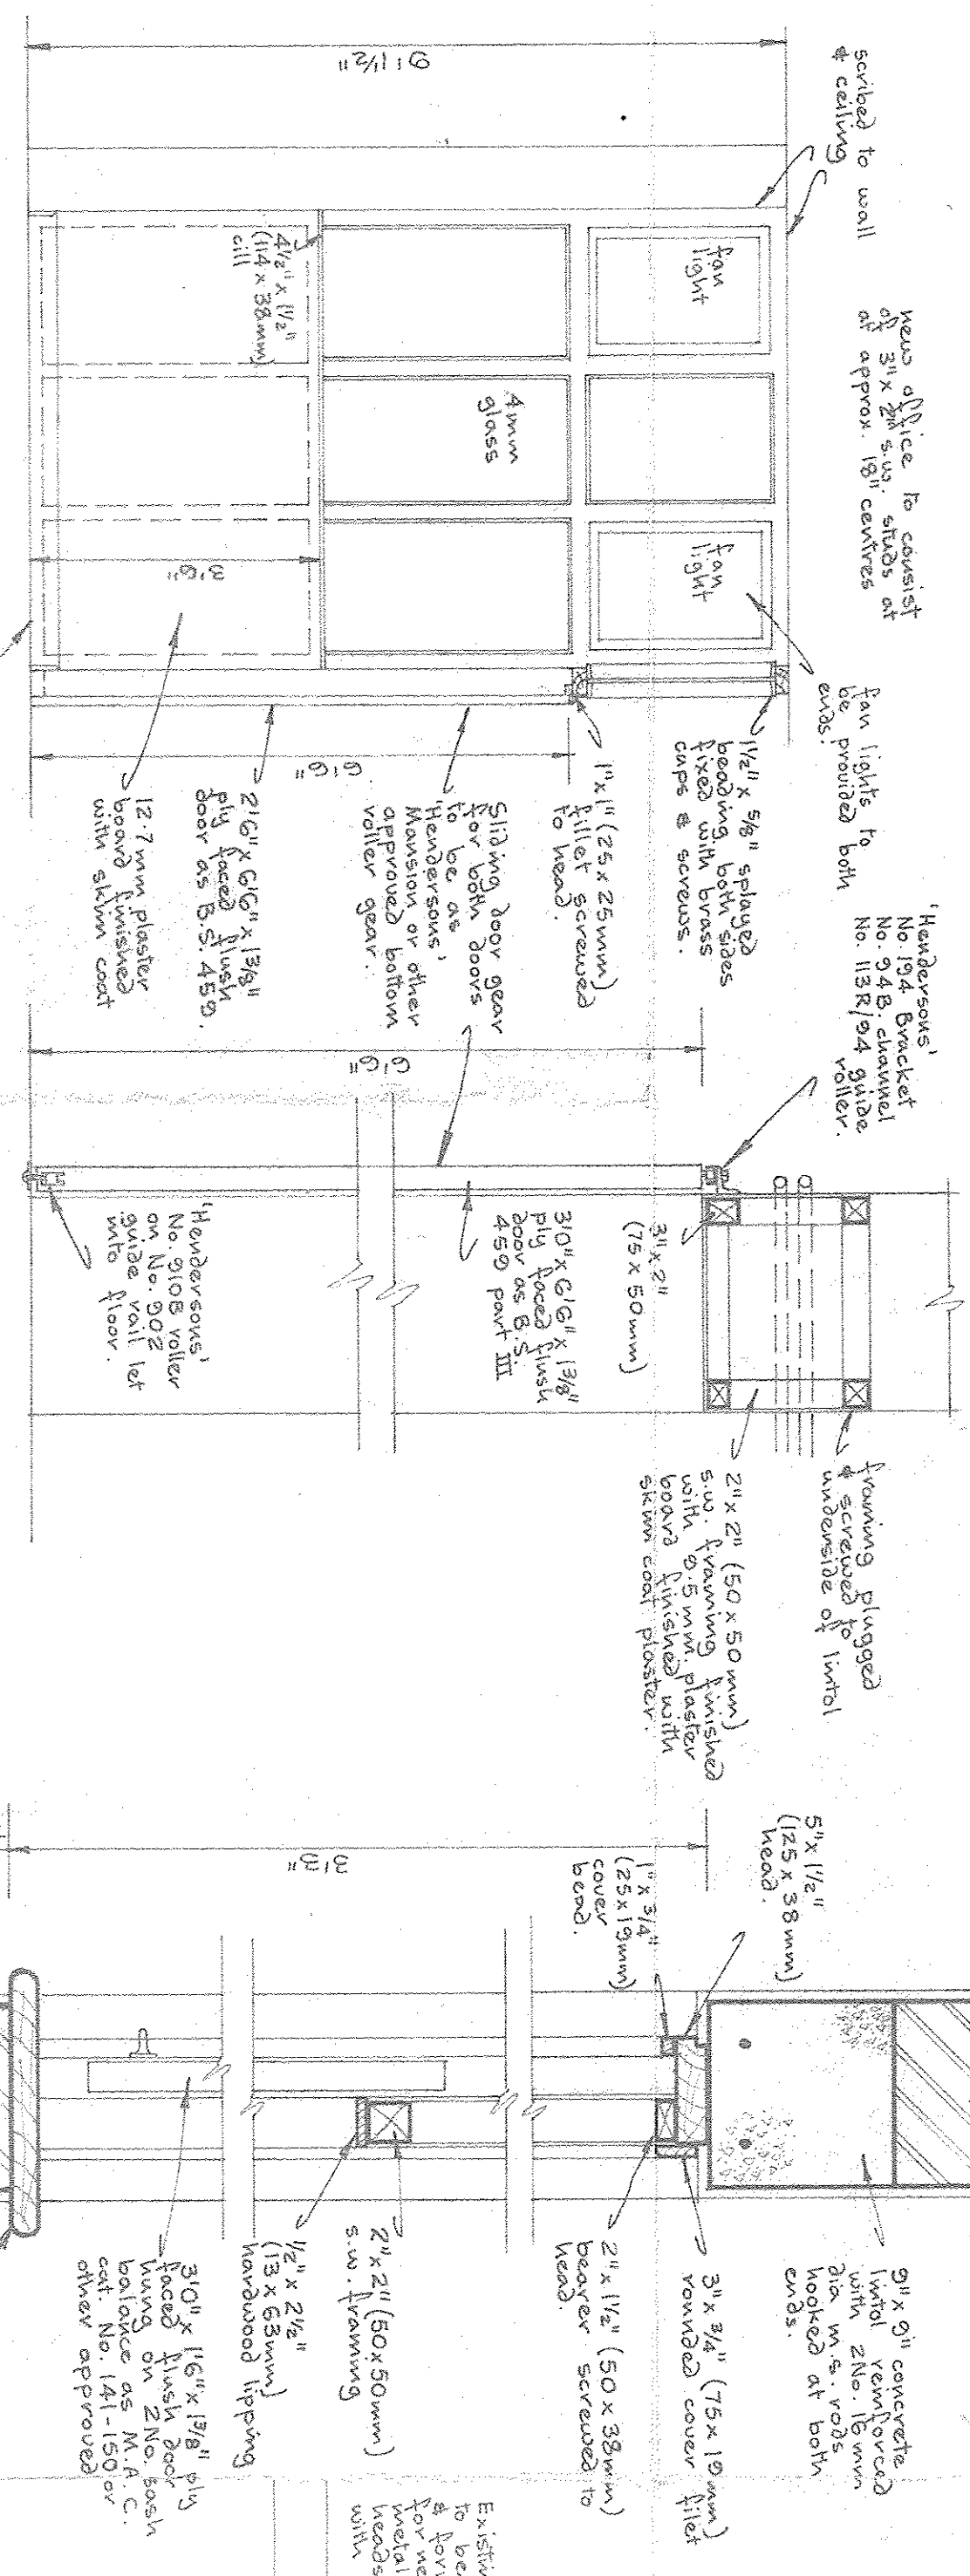 scribed to wall
& ceiling
new office to consist
of 3" x 2" s.w. studs at
at approx. 18" centres
fan lights to
be provided both
ends.
9'11½"
fan
light
fan
light
4mm
glass
4½" x 1½"
(114 x 38mm)
cill
3'6"
6'6"
1½" x 5/8" splayed
beading both sides
fixed with brass
cups & screws.
1" x 1" (25 x 25mm)
fillet screwed
to head.
Sliding door gear
for both doors
to be as
'Hendersons'
Mansion or other
approved bottom
roller gear.
2'6" x 6'6" x 1 3/8"
ply faced flush
door as B.S. 459.
12.7mm plaster
board finished
with skim coat
'Hendersons'
No. 194 Bracket
No. 94B. channel
No. 113R/94 guide
roller.
6'6"
3" x 2"
(75 x 50mm)
3'0" x 6'6" x 1 3/8"
ply faced flush
door as B.S.
459 part III
'Hendersons'
No. 910B roller
on No. 902
guide rail let
into floor.
framing plugged
& screwed to
underside of lintol
2" x 2" (50 x 50mm)
s.w. framing finished
with 9.5mm. plaster
board finished with
skim coat plaster.
3'3"
5" x 1½"
(125 x 38mm)
head.
1" x 3/4"
(25 x 19mm)
cover
bead.
9" x 9" concrete
lintol reinforced
with 2No. 16mm
dia m.s. rods
hooked at both
ends.
3" x 3/4" (75 x 19mm)
rounded cover filet
2" x 1½" (50 x 38mm)
bearer screwed to
head.
2" x 2" (50 x 50mm)
s.w. framing
½" x 2½"
(13 x 63mm)
hardwood lipping
3'0" x 1'6" x 1 3/8" ply
faced flush door
hung on 2No. sash
balance as M.A.C.
cat. No. 141-150 or
other approved
to be
& for
for ne
metal
heads
with